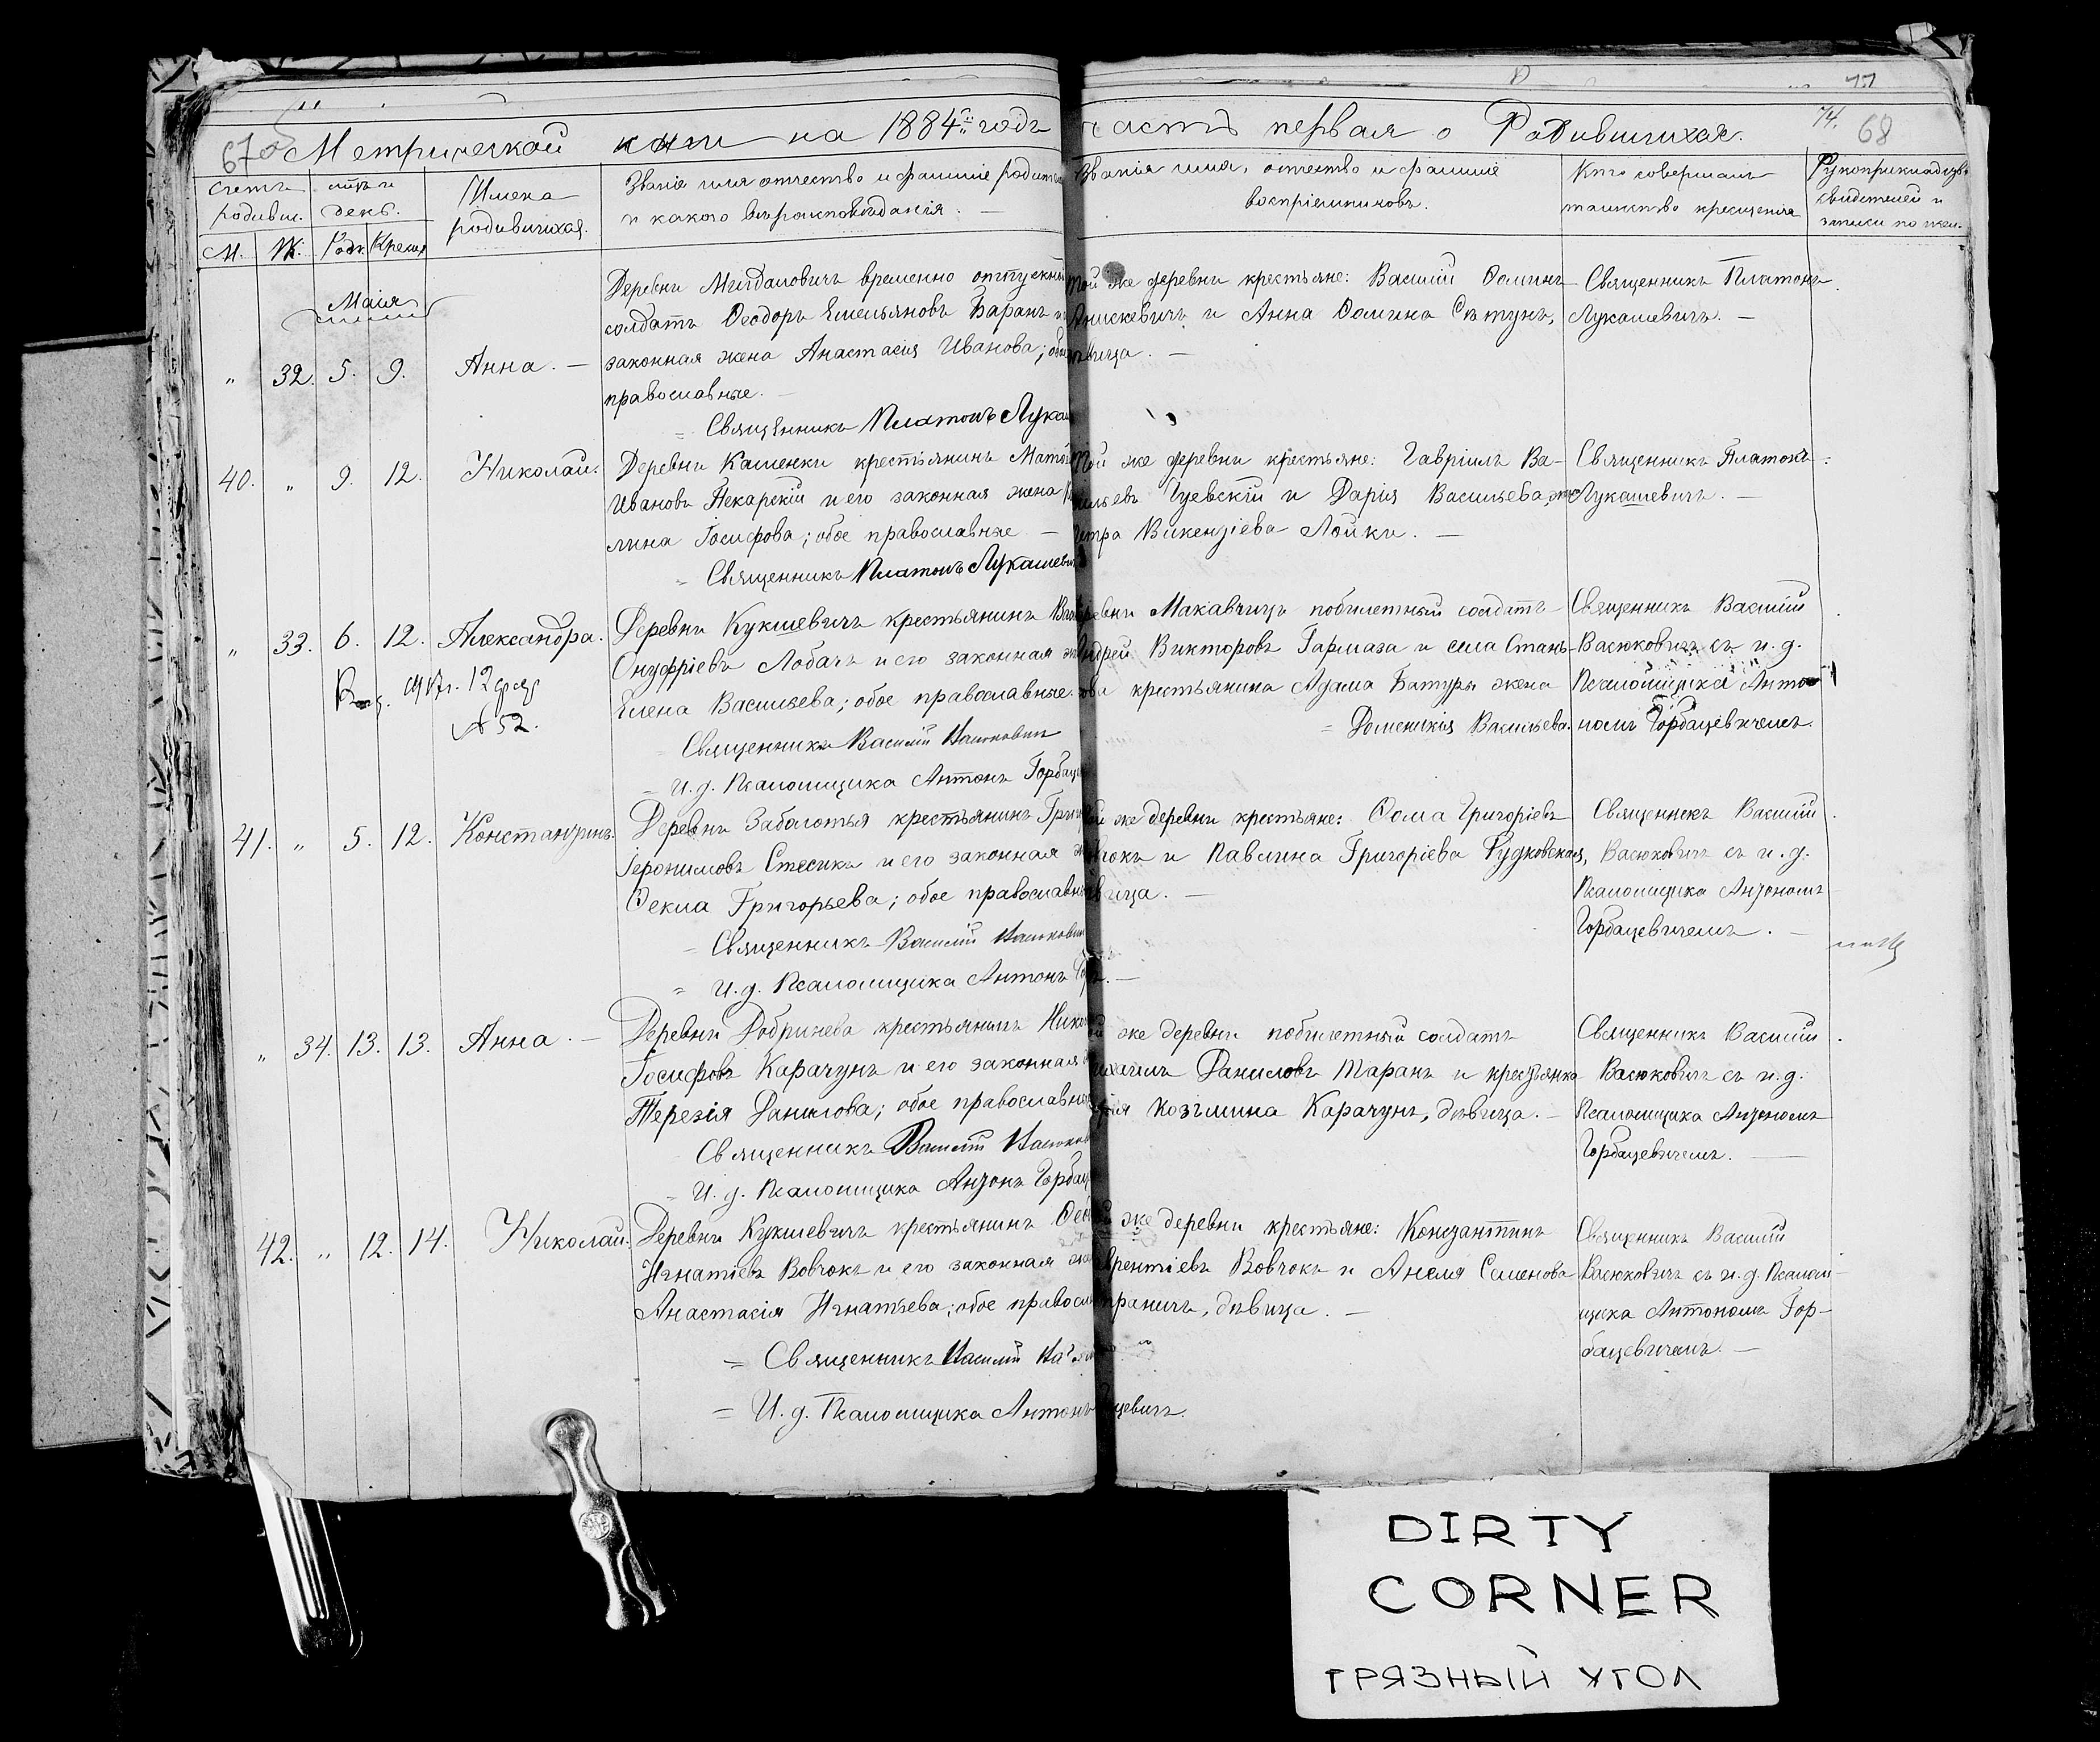 77
74.
67об 68
Метрической кни на 1884й годъ часть первая о Родившихся.
Счетъ родивш. М. Ж.
мѣсяцъ и день. Рожд. Крещен.
Имена родившихся.
Званіе имя отчество и фамиліе родител
и какого вѣроисповѣданія. —
Званіе имя, отчество и фамиліе
воспріемниковъ.
Кто совершалъ
таинство крещенія
Рукоприкладство
свидетелей и
записи по жел.
Маія
„ 32. 5. 9. Анна. —
Деревни Мигдаловичъ временно отпускный
солдатъ Ѳеодоръ Емельяновъ Баранъ и
законная жена Анастасія Иванова; обое
православные. —
= Священникъ Платонъ Лука
той же деревни крестьяне: Василій Ѳоминъ
Анискевичъ и Анна Ѳомина Сятунъ,
дѣвица. —
Священникъ Платонъ
Лукашевичъ. —
40. „ 9. 12. Николай.
Деревни Каменки крестьянинъ Матѳ
Ивановъ Пекарскій и его законная жена
лина Іосифова; обое православные —
= Священникъ Платонъ Лукашевичъ
той же деревни крестьяне: Гавріилъ Ва-
сильевъ Гуевскій и Дарія Васильева, жена
Петра Викензіева Лойки. —
Священникъ Платонъ
Лукашевичъ. —
„ 33. 6. 12. Александра.
12
№ 52.
Деревни Кукшевичъ крестьянинъ
Онуфріевъ Лобачъ и его законная ж
Елена Васильева; обое православные.
= Священникъ Василій Васюковичъ
= И. д. Псаломщика Антонъ Горбаце
деревни Макавчицъ побилетный солдатъ
Андрей Викторовъ Гармаза и села Стань-
ова крестьянина Адама Батуры жена
= Доминикія Васильева.
Священникъ Василій
Васюковичъ съ и. д.
Псаломщика Анто-
номъ Горбацевичемъ.
41. „ 5. 12. Константинъ.
Деревни Заболотья крестьянинъ Григ
Іеронимовъ Стесикъ и его законная ж
Ѳекла Григорьева; обое православн
= Священникъ Василій Васюкович
= И. д. Псаломщика Антонъ Гор. —
той же деревни крестьяне: Ѳома Григоріевъ
и Павлина Григоріева Рудковская,
дѣвица. —
Священникъ Василій
Васюковичъ съ и. д.
Псаломщика Антономъ
Горбацевичемъ. —
„ 34. 13. 13. Анна. —
Деревни Добринева крестьянинъ Нико
Іосифовъ Карачунъ и его законная
Терезія Данилова; обое православн
Священникъ Василій Васюков
= И. д. Псаломщика Антонъ Горбац
той же деревни побилетный солдатъ
Михаилъ Даниловъ Таранъ и крестьянка
Козьмина Карачунъ, дѣвица. —
Священникъ Василій
Васюковичъ съ и. д.
Псаломщика Антономъ
Горбацевичемъ. —
42. „ 12. 14. Николай.
Деревни Кукшевичъ крестьянинъ Ѳео
Игнатіевъ Вовчокъ и его законная же
Анастасія Игнатьева; обое правосл
= Священникъ Василій Ва
= И. д. Псаломщика Антонъ цевичъ.
той же деревни крестьяне: Константинъ
Лаврентіевъ Вовчокъ и Анеля Семенова
, дѣвица. —
Священникъ Василій
Васюковичъ съ и. д. Псалом-
щика Антономъ Гор-
бацевичемъ. —
DIRTY
CORNER
ГРЯЗНЫЙ УГОЛ